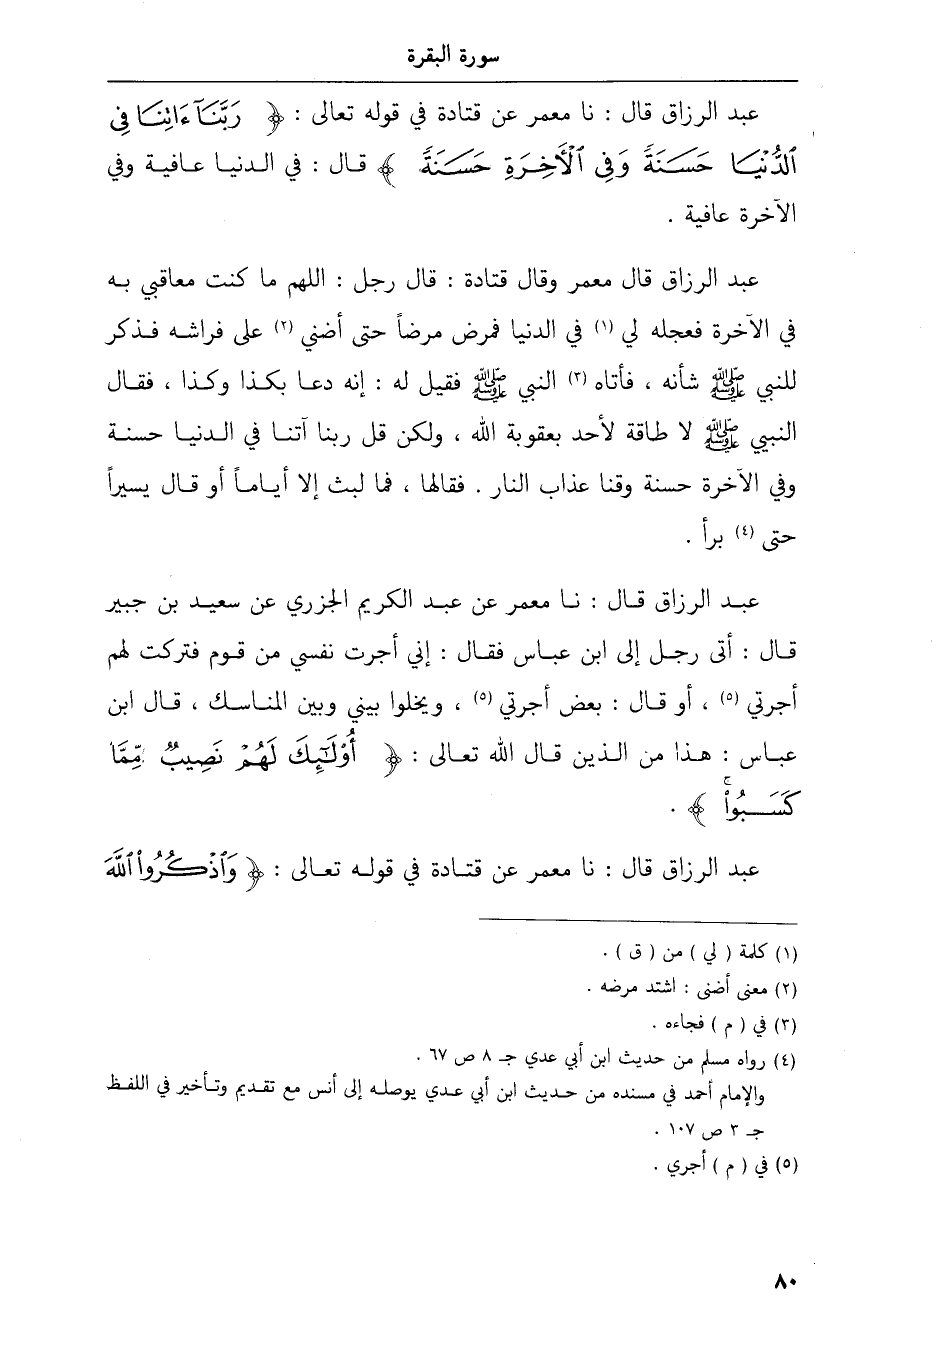 سورة البقرة
عبد الرزاق قال : نا معمر عن قتادة في قوله تعالى : ﴿ رَبَّنَآ ءَاتِنَا فِى
ٱلدُّنْيَا حَسَنَةً وَفِى ٱلْأَخِرَةِ حَسَنَةً ﴾ قال : في الدنيا عافية وفي
الآخرة عافية .
عبد الرزاق قال معمر وقال قتادة : قال رجل : اللهم ما كنت معاقبي به
في الآخرة فعجله لي (١) في الدنيا فمرض مرضاً حتى أضني (٢) على فراشه فذكر
للنبي ﷺ شأنه ، فأتاه (٣) النبي ﷺ فقيل له : إنه دعا بكذا وكذا ، فقال
النبي ﷺ لا طاقة لأحد بعقوبة الله ، ولكن قل ربنا آتنا في الدنيا حسنة
وفي الآخرة حسنة وقنا عذاب النار . فقالها ، فما لبث إلا أياماً أو قال يسيراً
حتى (٤) برأ .
عبد الرزاق قال : نا معمر عن عبد الكريم الجزري عن سعيد بن جبير
قال : أتى رجل إلى ابن عباس فقال : إني أجرت نفسي من قوم فتركت لهم
أجرتي (٥) ، أو قال : بعض أجرتي (٥) ، ويخلوا بيني وبين المناسك ، قال ابن
عباس : هذا من الذين قال الله تعالى : ﴿ أُوْلَٰٓئِكَ لَهُمْ نَصِيبٌ مِّمَّا
كَسَبُواْۚ ﴾ .
عبد الرزاق قال : نا معمر عن قتادة في قوله تعالى : ﴿ وَٱذْكُرُواْ ٱللَّهَ
(١) كلمة ( لي ) من ( ق ) .
(٢) معنى أضنى : اشتد مرضه .
(٣) في ( م ) فجاءه .
(٤) رواه مسلم من حديث ابن أبي عدي جـ ٨ ص ٦٧ .
والإمام أحمد في مسنده من حديث ابن أبي عدي يوصله إلى أنس مع تقديم وتأخير في اللفظ
جـ ٣ ص ١٠٧ .
(٥) في ( م ) أجري .
٨٠